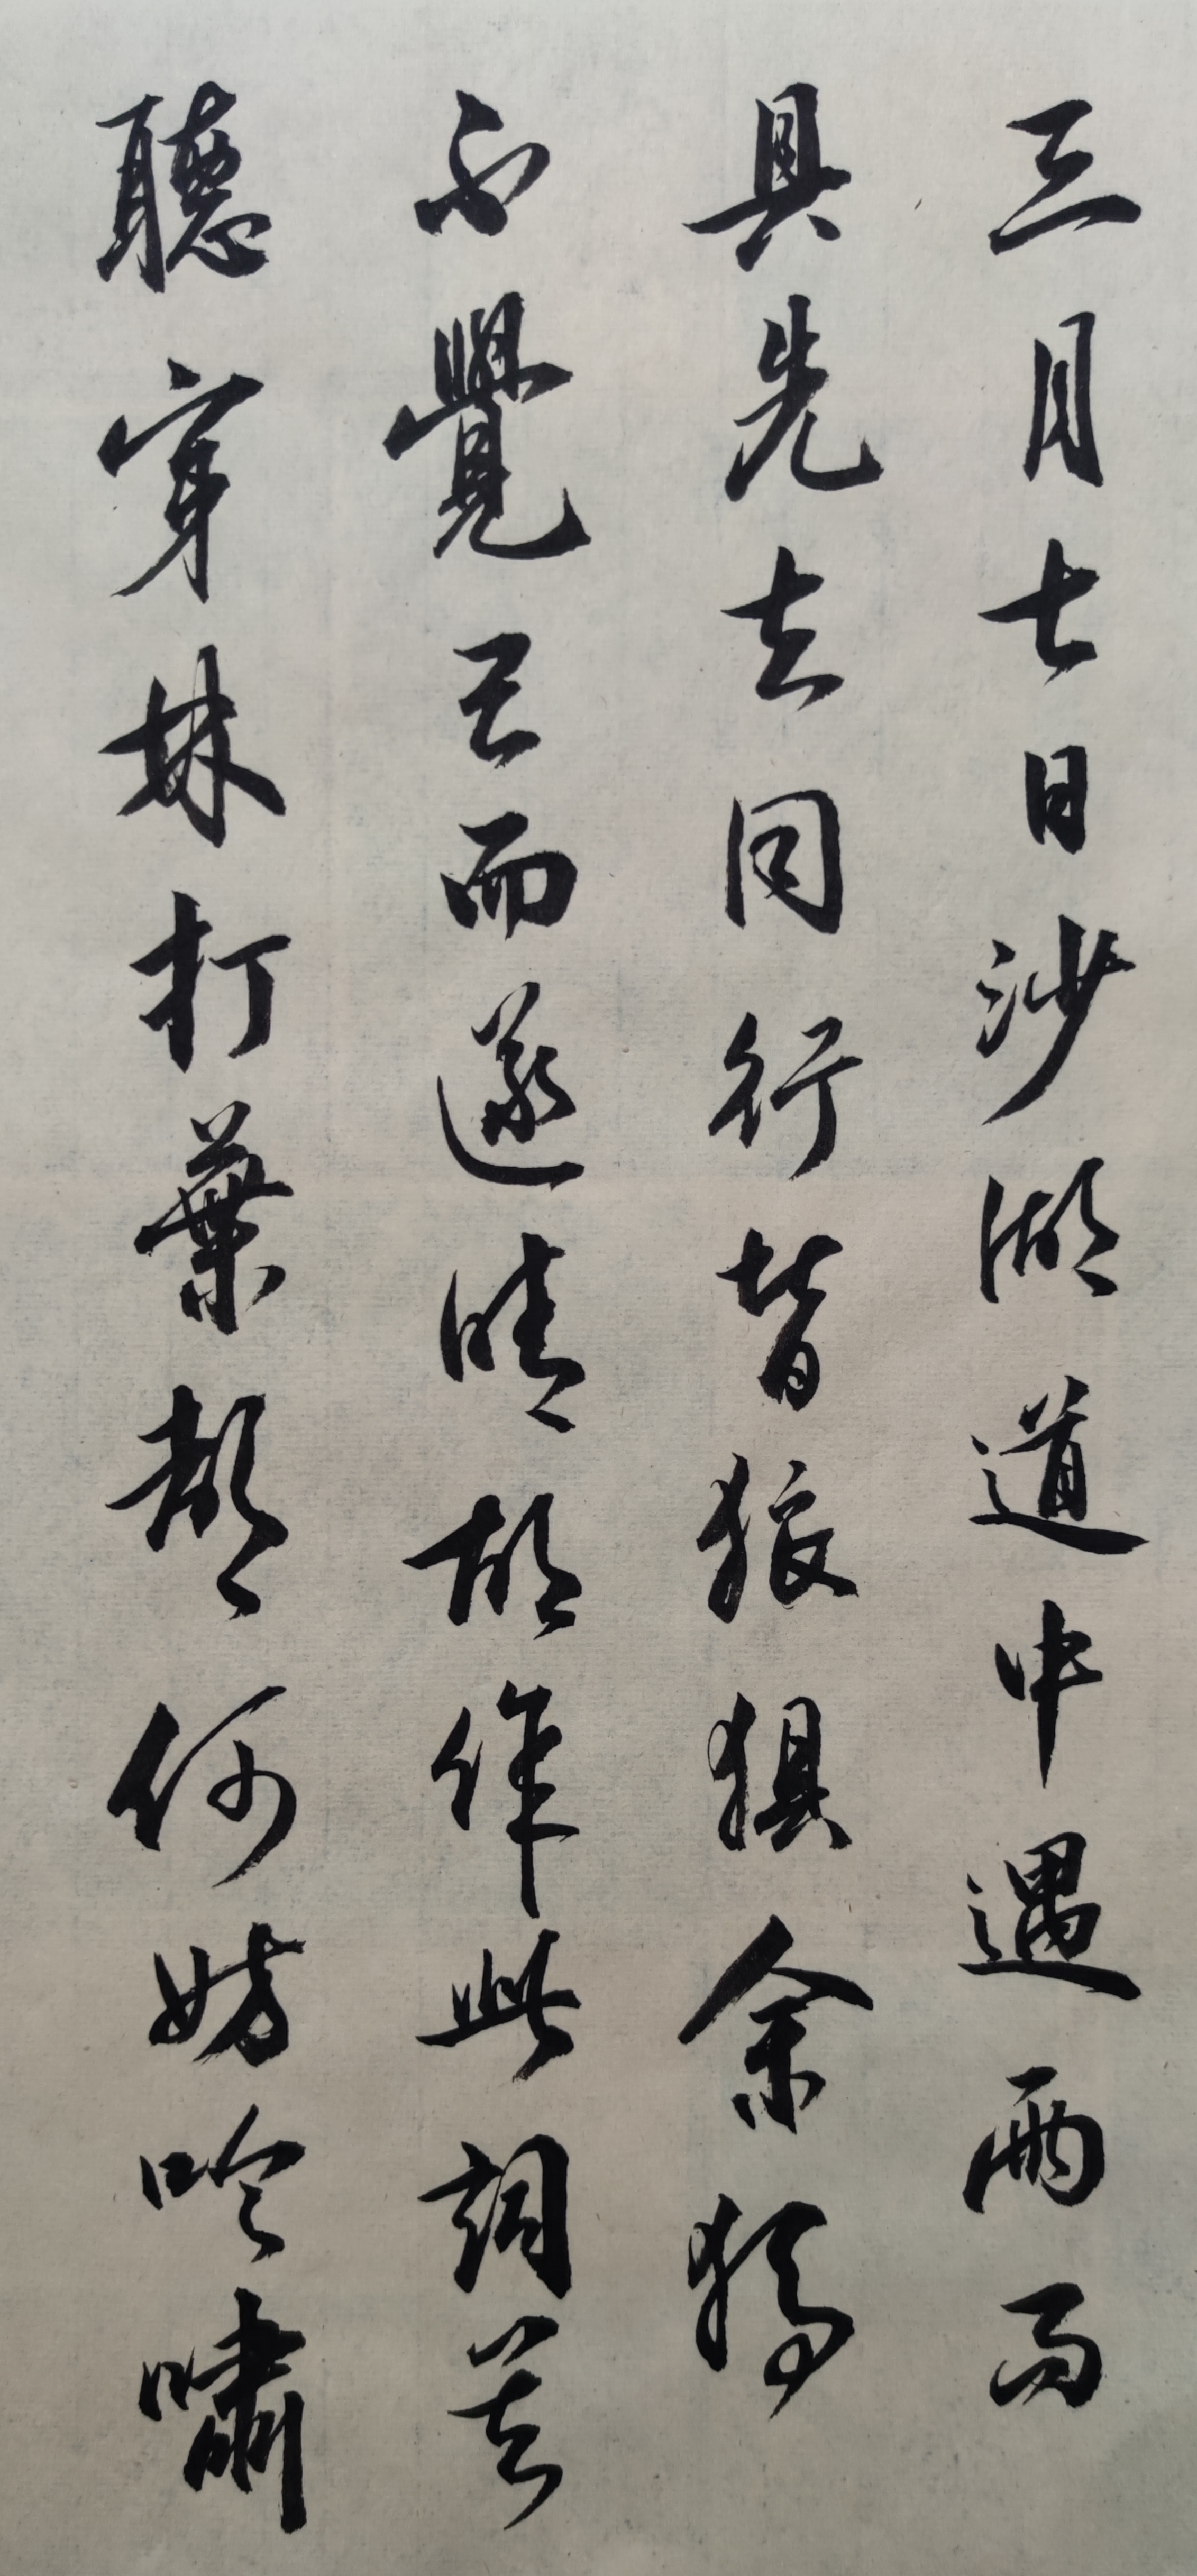 三月七日沙湖道中遇雨雨
具先去同行皆狼狽余獨
不覺已而遂晴故作此詞莫
聽穿林打葉聲何妨吟嘯